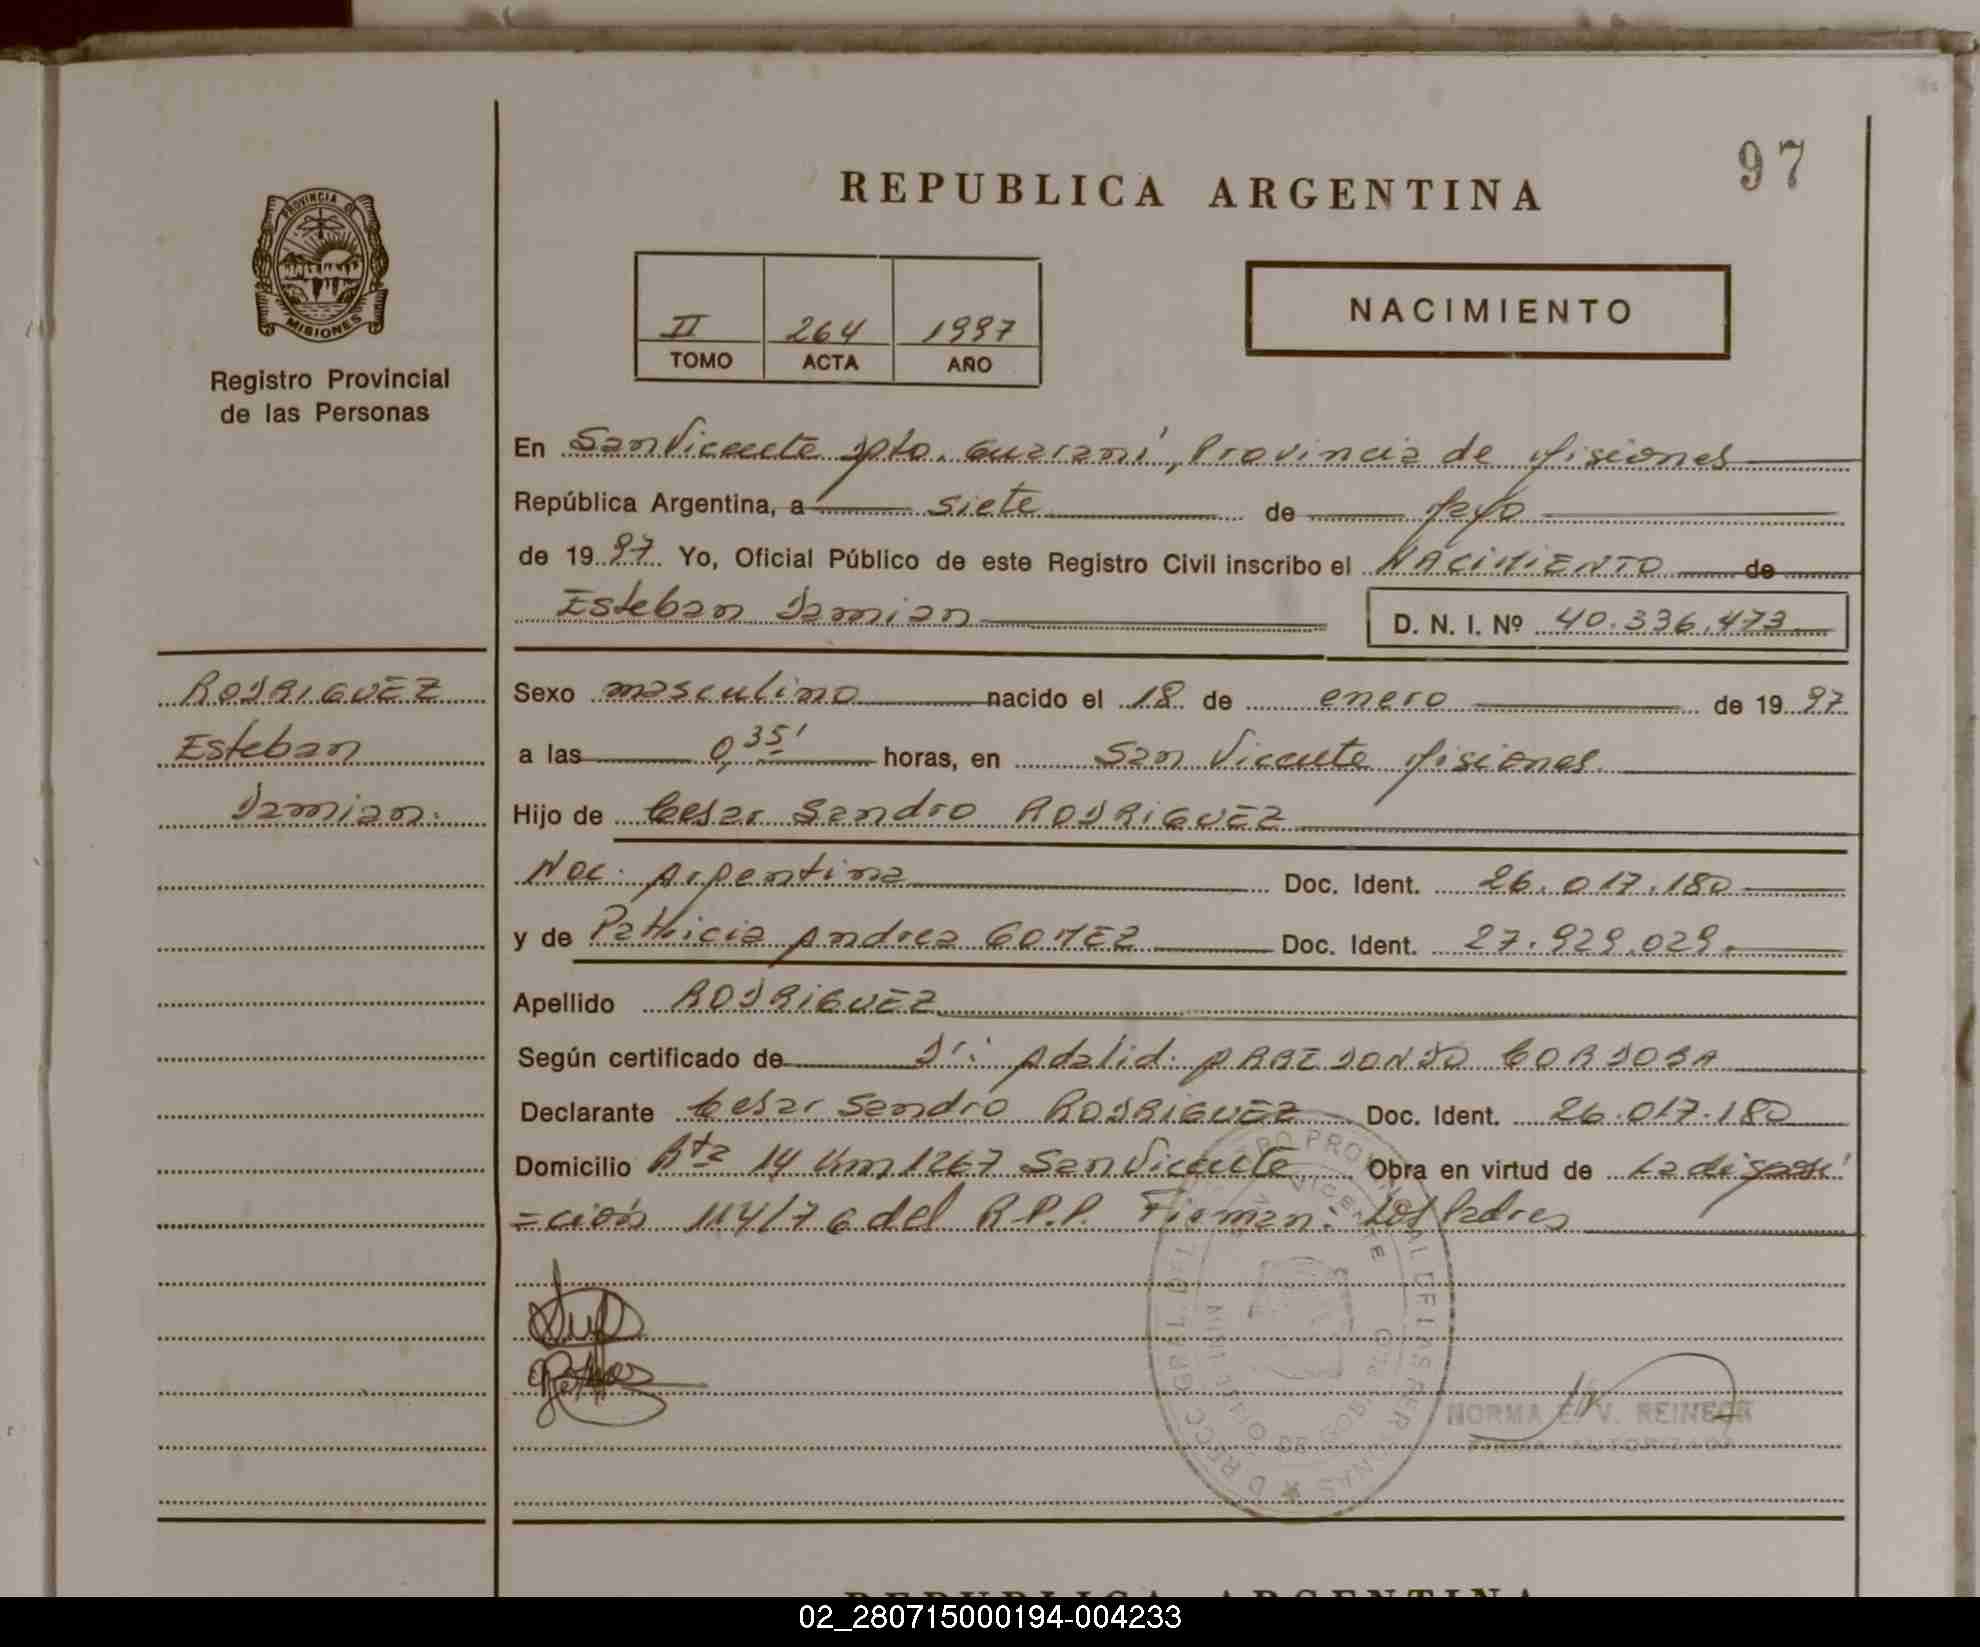 97
REPUBLICA ARGENTINA
PROVINCIA DE
MISIONES
Registro Provincial
de las Personas
II 264 1997
TOMO ACTA AÑO
NACIMIENTO
En San Vicente Dpto. Guaraní, Provincia de Misiones
República Argentina, a siete de Mayo
de 1997 Yo, Oficial Público de este Registro Civil inscribo el NACIMIENTO de
Esteban Damian D. N. I. Nº 40.336.473
RODRIGUEZ
Esteban
Damian.
Sexo masculino nacido el 18 de enero de 1997
a las 0,35' horas, en San Vicente Misiones.
Hijo de Cesar Sandro RODRIGUEZ
Nac. Argentina Doc. Ident. 26.017.180
y de Patricia Andrea GOMEZ Doc. Ident. 27.929.029.
Apellido RODRIGUEZ
Según certificado de Dr. Adalid ARREDONDO CORDOBA
Declarante Cesar Sandro RODRIGUEZ Doc. Ident. 26.017.180
Domicilio Rta 14 Km 1267 San Vicente Obra en virtud de La disposi
=ción 114/76 del R.P.P. Firman: Los Padres
NORMA E. V. REINECK
FIRMA AUTORIZADA
REPUBLICA ARGENTINA
02_280715000194-004233